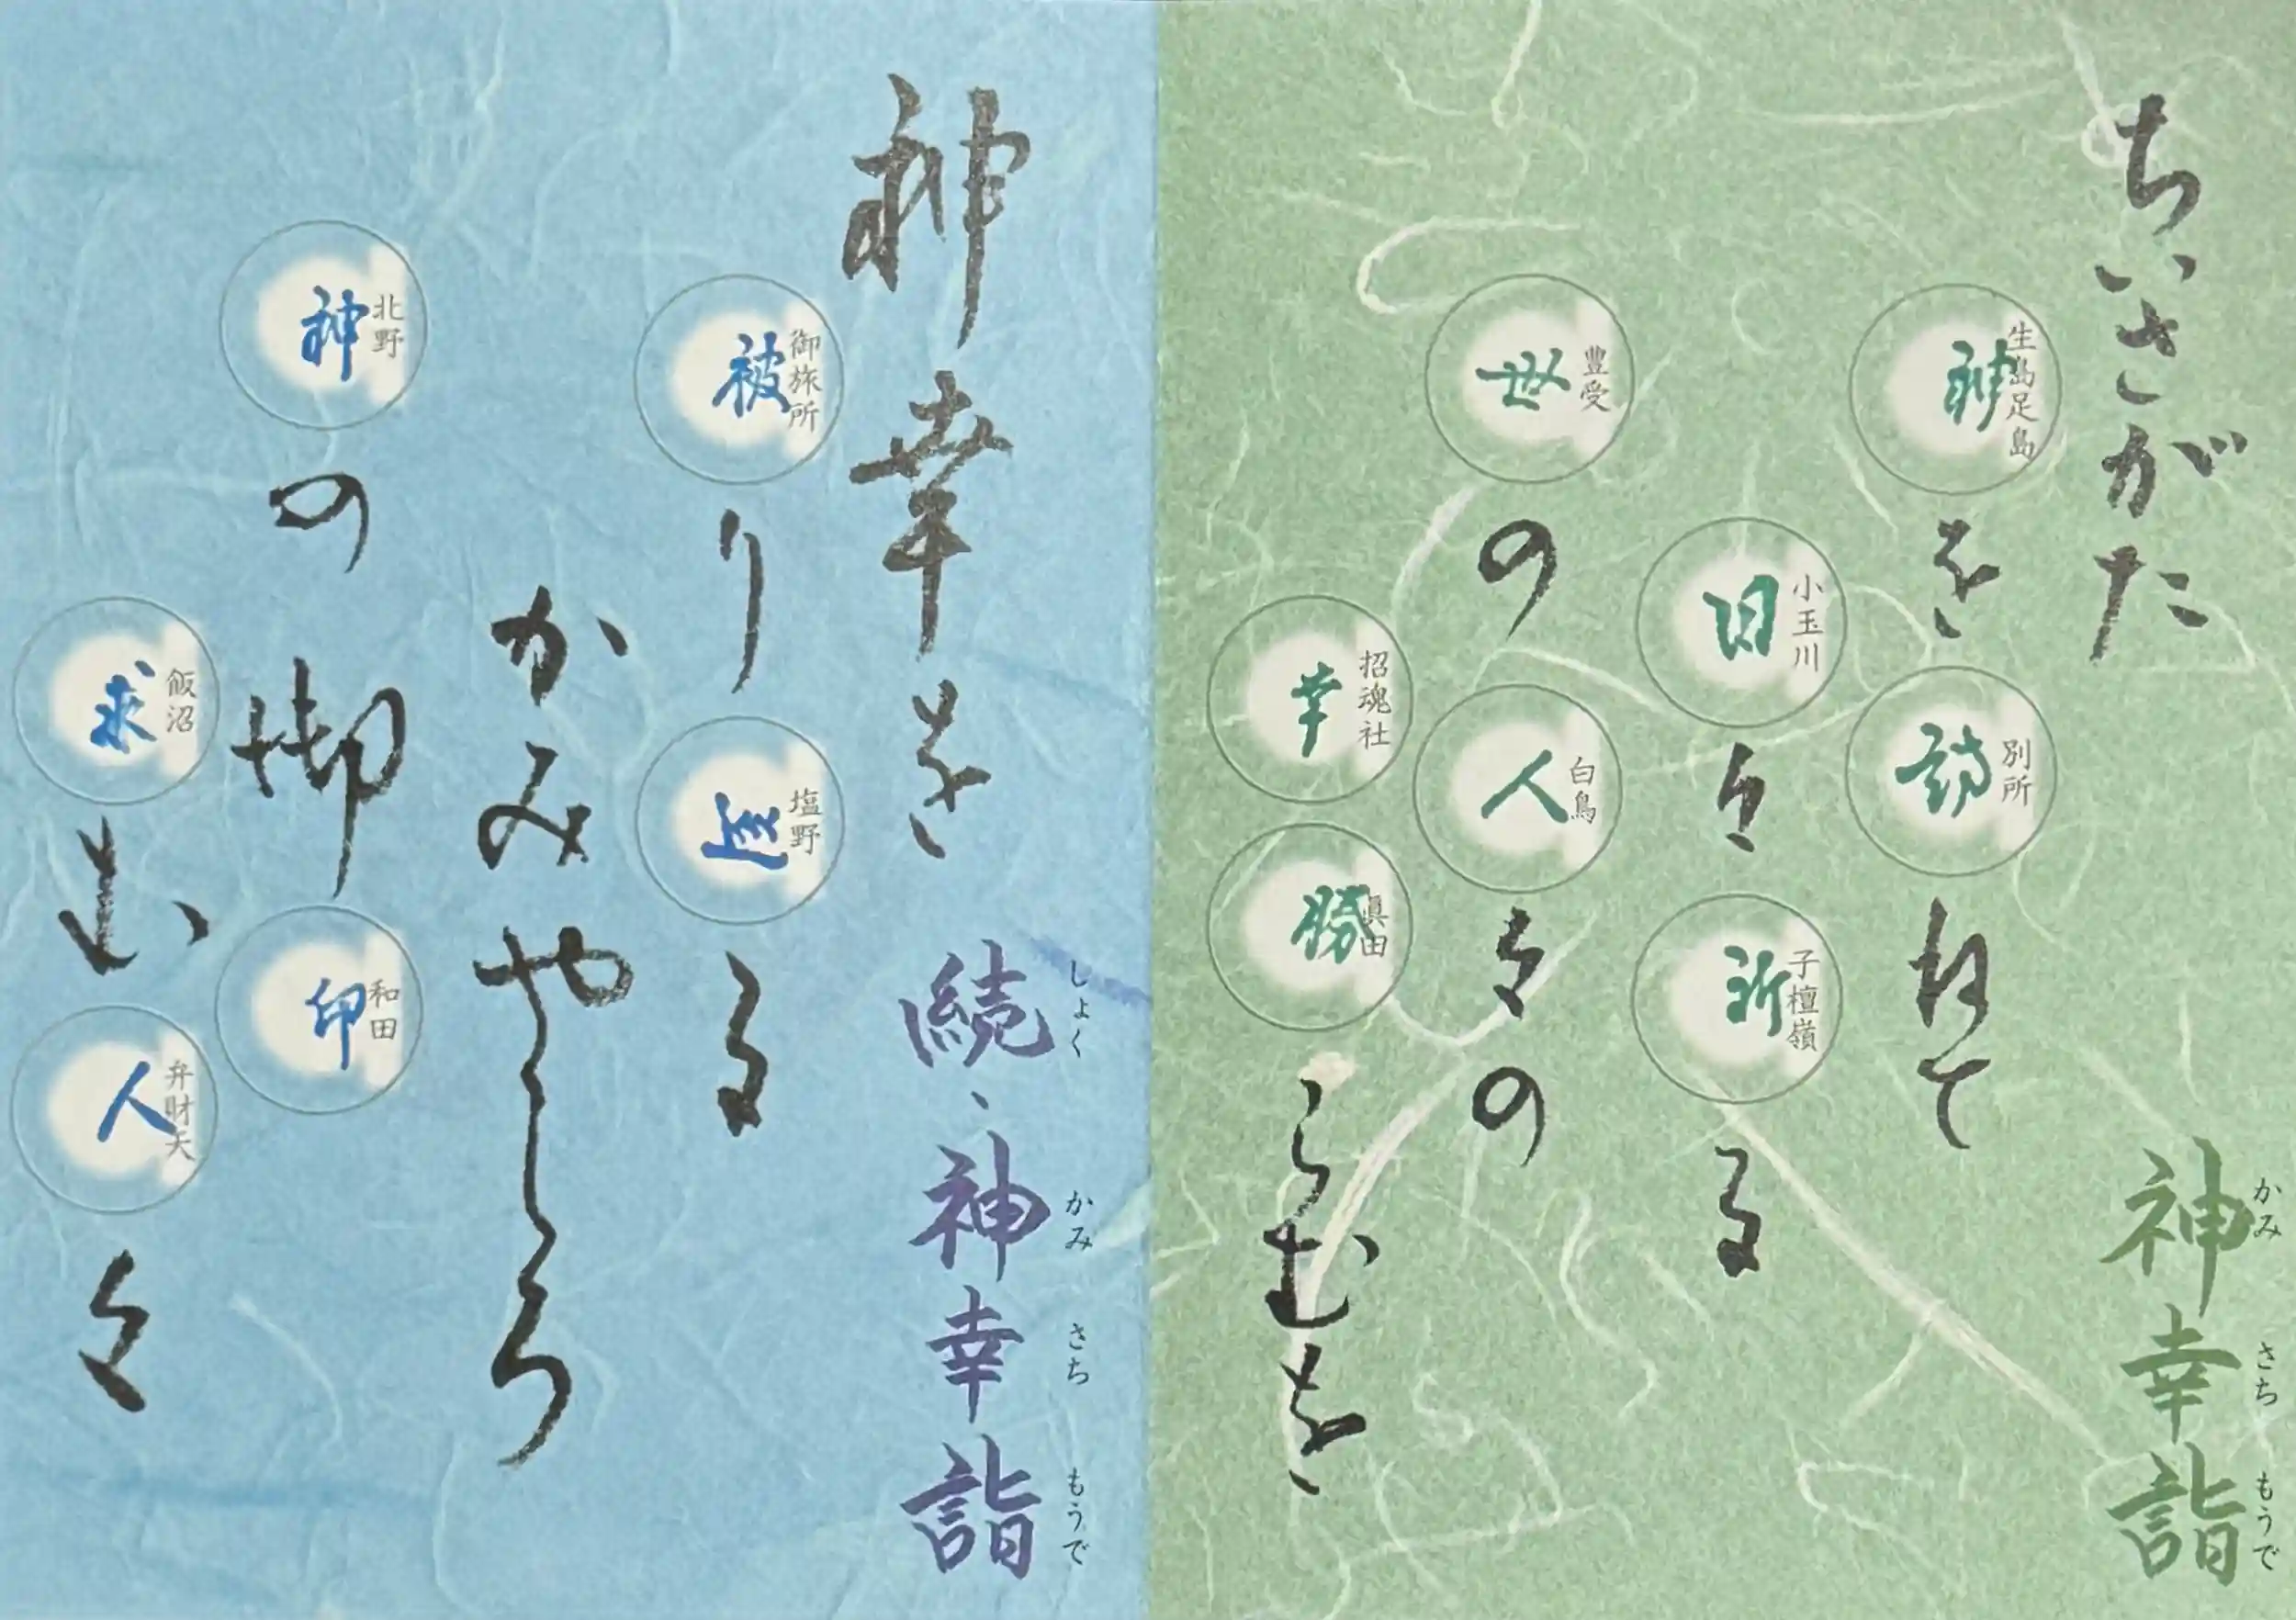 ちいさがた
神幸詣
かみ さち もうで
神を訪ねて
生島足島
別所
日々祈る
小玉川
子檀嶺
世の人々の
豊受
白鳥
幸勝らむを
招魂社
眞田
神幸を
続、神幸詣
しょく かみ さち もうで
被り巡る
御旅所
塩野
かみやしろ
神の御印
北野
和田
求む人々
飯沼
弁財天